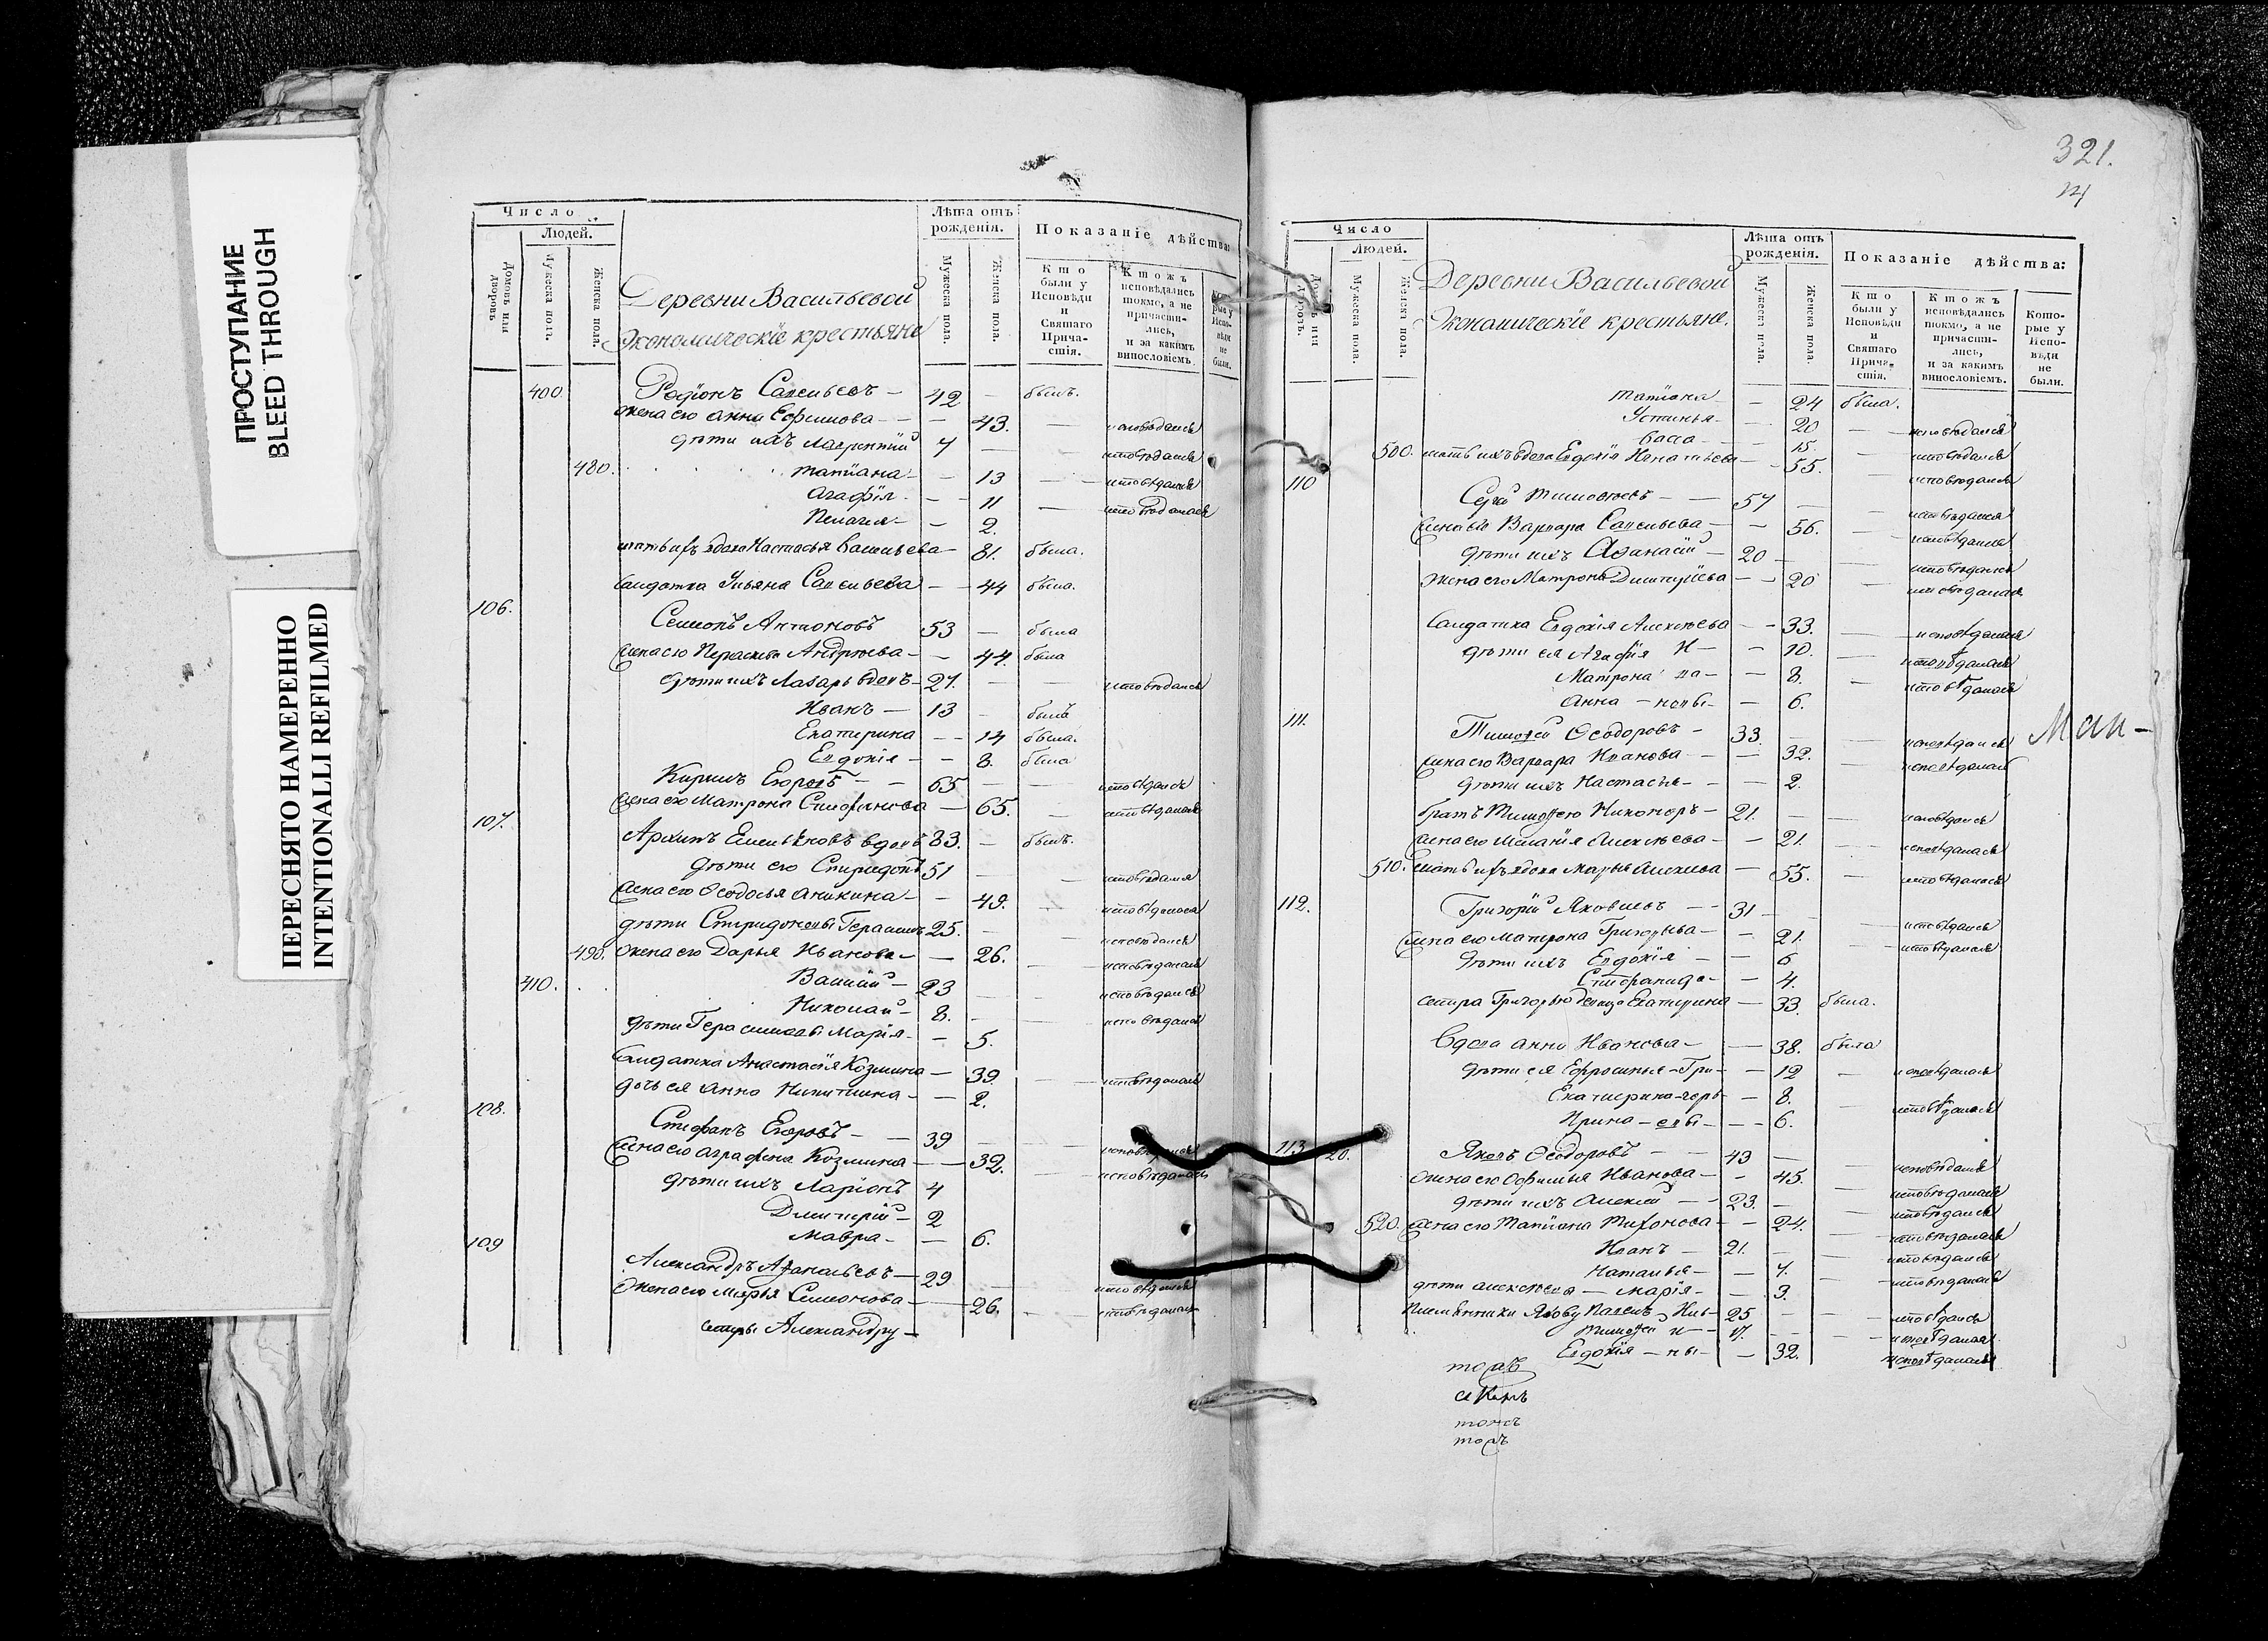 ПРОСТУПАНИЕ
BLEED THROUGH
ПЕРЕСНЯТО НАМЕРЕННО
INTENTIONALLI REFILMED
Число
Людей.
Домовъ или дворовъ
Мужеска пола.
Женска пола.
Деревни Васильевой
Экономическіе крестьяне
Лѣта отъ рожденія.
Мужеска пола.
Женска пола.
Показаніе дѣйства:
Кто были у Исповѣди и Святаго Причастія.
Ктожъ исповѣдались токмо, а не причастились, и за какимъ винословіемъ.
Которые у Исповѣди не были.
400. Родіонъ Савельевъ — 42 — былъ.
жена его Анна Ефимова — — 43. — исповѣдалась
дѣти ихъ Лаврентій 7 — исповѣдался
480. Татіана — 13 — исповѣдалась
Агафія — — 11 — исповѣдалась
Пелагея — — 2.
мать ихъ вдова Настасья Васильева — 81. была.
Солдатка Ульяна Савельева — — 44 была.
106. Семіонъ Антоновъ 53 — была
жена его Параскева Андрѣева — — 44. была
дѣти ихъ Лазарь вдовъ — 27. — — исповѣдался
Иванъ — 13 — былъ
Екатерина — — 14 была.
Евдокія — — 8. была
Кирилъ Егоровъ — — 65 — — исповѣдался
жена его Матрона Стефанова — 65. — исповѣдалась
107. Архипъ Емельяновъ вдовъ 83. — былъ.
дѣти его Спиридонъ 51 — — исповѣдался
жена его Ѳеодосья Аникина — — 49. — исповѣдалась
дѣти Спиридоновы Герасимъ 25. — — исповѣдался
490. жена его Дарья Иванова — — 26. — исповѣдалась
410. Василій — 23 — — исповѣдался
Николай — 8. — — исповѣдался
дѣти Герасимовы Марія — — 5.
Солдатка Анастасія Козмина — 39 — исповѣдалась
дочь ея Анна Никитина — — 2.
108. Стефанъ Егоровъ — — 39 — — исповѣдался
жена его Аграфена Козмина — — 32. — исповѣдалась
дѣти ихъ Ларіонъ 4
Димитрій — 2
Мавра — — 6.
109 Александръ Афанасьевъ — 29 — исповѣдался
жена его Марья Семіонова — — 26. — исповѣдалась
сестры Александру —
321.
Число
Людей.
Домовъ или дворовъ.
Мужеска пола.
Женска пола.
Деревни Васильевой
Экономическіе крестьяне.
Лѣта отъ рожденія.
Мужеска пола.
Женска пола.
Показаніе дѣйства:
Кто были у Исповѣди и Святаго Причастія.
Ктожъ исповѣдались токмо, а не причастились, и за какимъ винословіемъ.
Которые у Исповѣди не были.
Татіана — — 24 была.
Устинья — — 20 — исповѣдалась
Васса — — 15. — исповѣдалась
500. мать ихъ вдова Евдокія Игнатьева — — 55. — исповѣдалась
110 Сергій Тимоѳеевъ — — 57 — — исповѣдался
жена его Варвара Савельева — — 56. — исповѣдалась
дѣти ихъ Аѳанасій — 20 — — исповѣдался
жена его Матрона Димитріева — — 20 — исповѣдалась
Солдатка Евдокія Алексѣева — — 33. — исповѣдалась
дѣти ея Агафія И — — 10. — исповѣдалась
Матрона ва — — 8. — исповѣдалась
Анна — новы — — 6.
111. Тимоѳей Ѳеодоровъ — 33. — — исповѣдался
Ман —
жена его Варвара Иванова — — 32. — исповѣдалась
дѣти ихъ Настасья — — 2.
братъ Тимоѳею Никоноръ — 21. — — исповѣдался
жена его Меланія Алексѣева — — 21. — исповѣдалась
510. мать ихъ вдова Марья Алексѣева — 55. — исповѣдалась
112. Григорій Яковлевъ — — 31 — исповѣдался
жена его Матрона Григорьева — — 21. — исповѣдалась
дѣти ихъ Евдокія — — 6
Стефанида — — 4.
сестра Григорью девица Екатерина — 33. была.
Вдова Анна Иванова — — 38. была
дѣти ея Ефросинья — Гри — — 12 — исповѣдалась
Екатерина — горь — — 8. исповѣдалась
Ирина — евы — — — 6.
113 20. Яковъ Ѳеодоровъ — — 43 — исповѣдался
жена его Офимья Иванова — — 45. — исповѣдалась
дѣти ихъ Алексѣй — — 23. — исповѣдался
520. жена его Татіана Тихонова — — 24. — исповѣдалась
Иванъ — 21. — — исповѣдался
Наталья — — 7. — исповѣдалась
дѣти Алексѣевы — Марія — — 3.
племянники Якову Павелъ 25 — — исповѣдался
Тимоѳей — 17. — — исповѣдался
Евдокія — ны — — 32. исповѣдалась